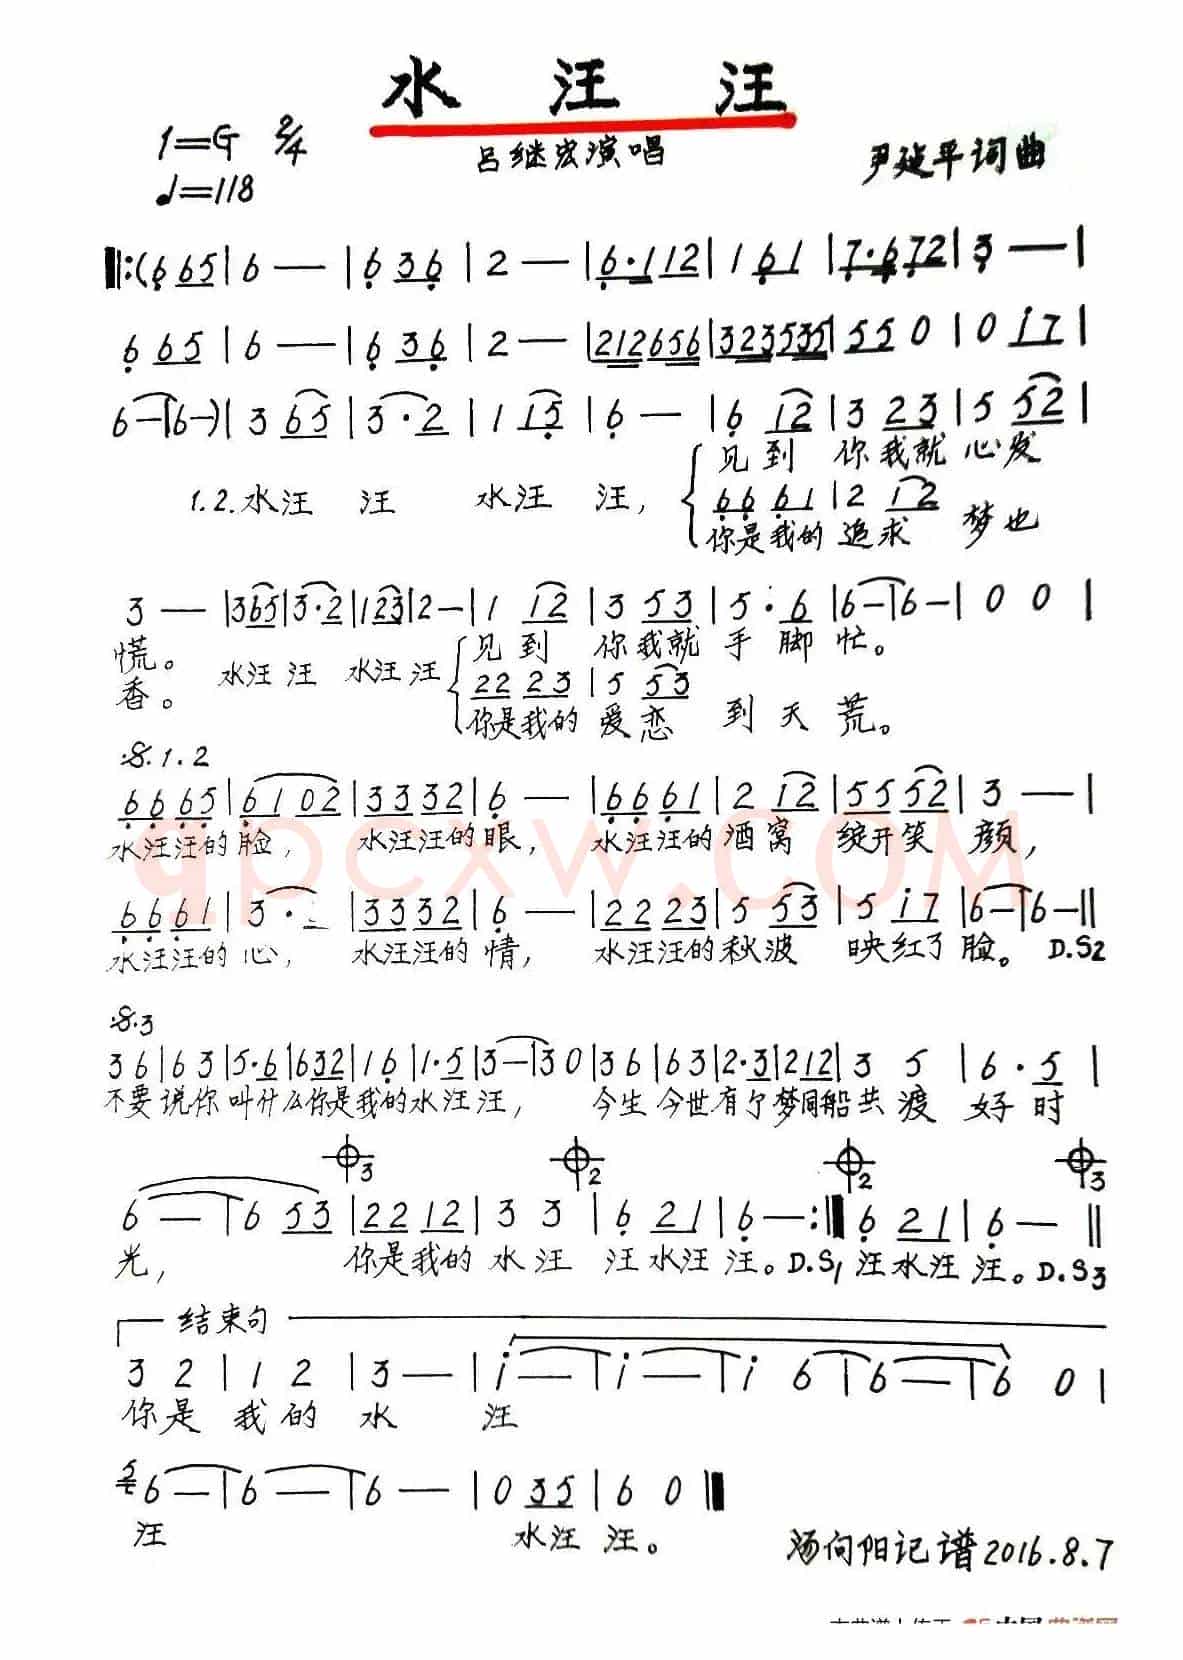 水 汪 汪
1=G 2/4
吕继宏演唱
尹延平词曲
♩=118
‖:(6 65|6 —|6 36|2 —|6·112|1 61|7·672|3 —|
6 65|6 —|6 36|2 —|212656|323535|55 0|0 i7|
6—|6—)|3 65|3·2|1 15|6 —|6 12|3 23|5 52|
见到 你我就 心发
1.2.水汪 汪 水汪 汪,
66 61|2 12
你是我的 追求 梦也
3 —|365|3·2|123|2—|1 12|3 53|5·6|6—|6—|0 0|
慌。 水汪 汪 水汪 汪 见到 你我就 手 脚 忙。
香。
22 23|5 53
你是我的 爱恋 到 天 荒。
𝄋.1.2
6665|6102|3332|6 —|6661|2 12|5552|3 —|
水汪汪的脸, 水汪汪的眼, 水汪汪的酒窝 绽开笑 颜,
qpcxw.com
6661|3·|3332|6 —|2223|5 53|5 i7|6—|6—‖
水汪汪的 心, 水汪汪的 情, 水汪汪的秋波 映红了 脸。 D.S2
𝄋.3
36|63|5·6|632|16|1·5|3—|30|36|63|2·3|212|3 5|6·5|
不要 说你 叫什么你是我的水汪 汪, 今生 今世有个梦同船共 渡 好 时
𝄌3 𝄌2 𝄌2 𝄌3
6 —|6 53|22 12|3 3|6 21|6—:‖6 21|6— ‖
光, 你是我的 水 汪 汪水汪 汪。D.S1 汪水汪 汪。D.S3
结束句
3 2|1 2|3—|i—|i—|i 6|6—|6 0|
你是 我的 水 汪
6—|6—|6—|0 35|6 0‖
汪 水汪 汪。
汤向阳记谱2016.8.7